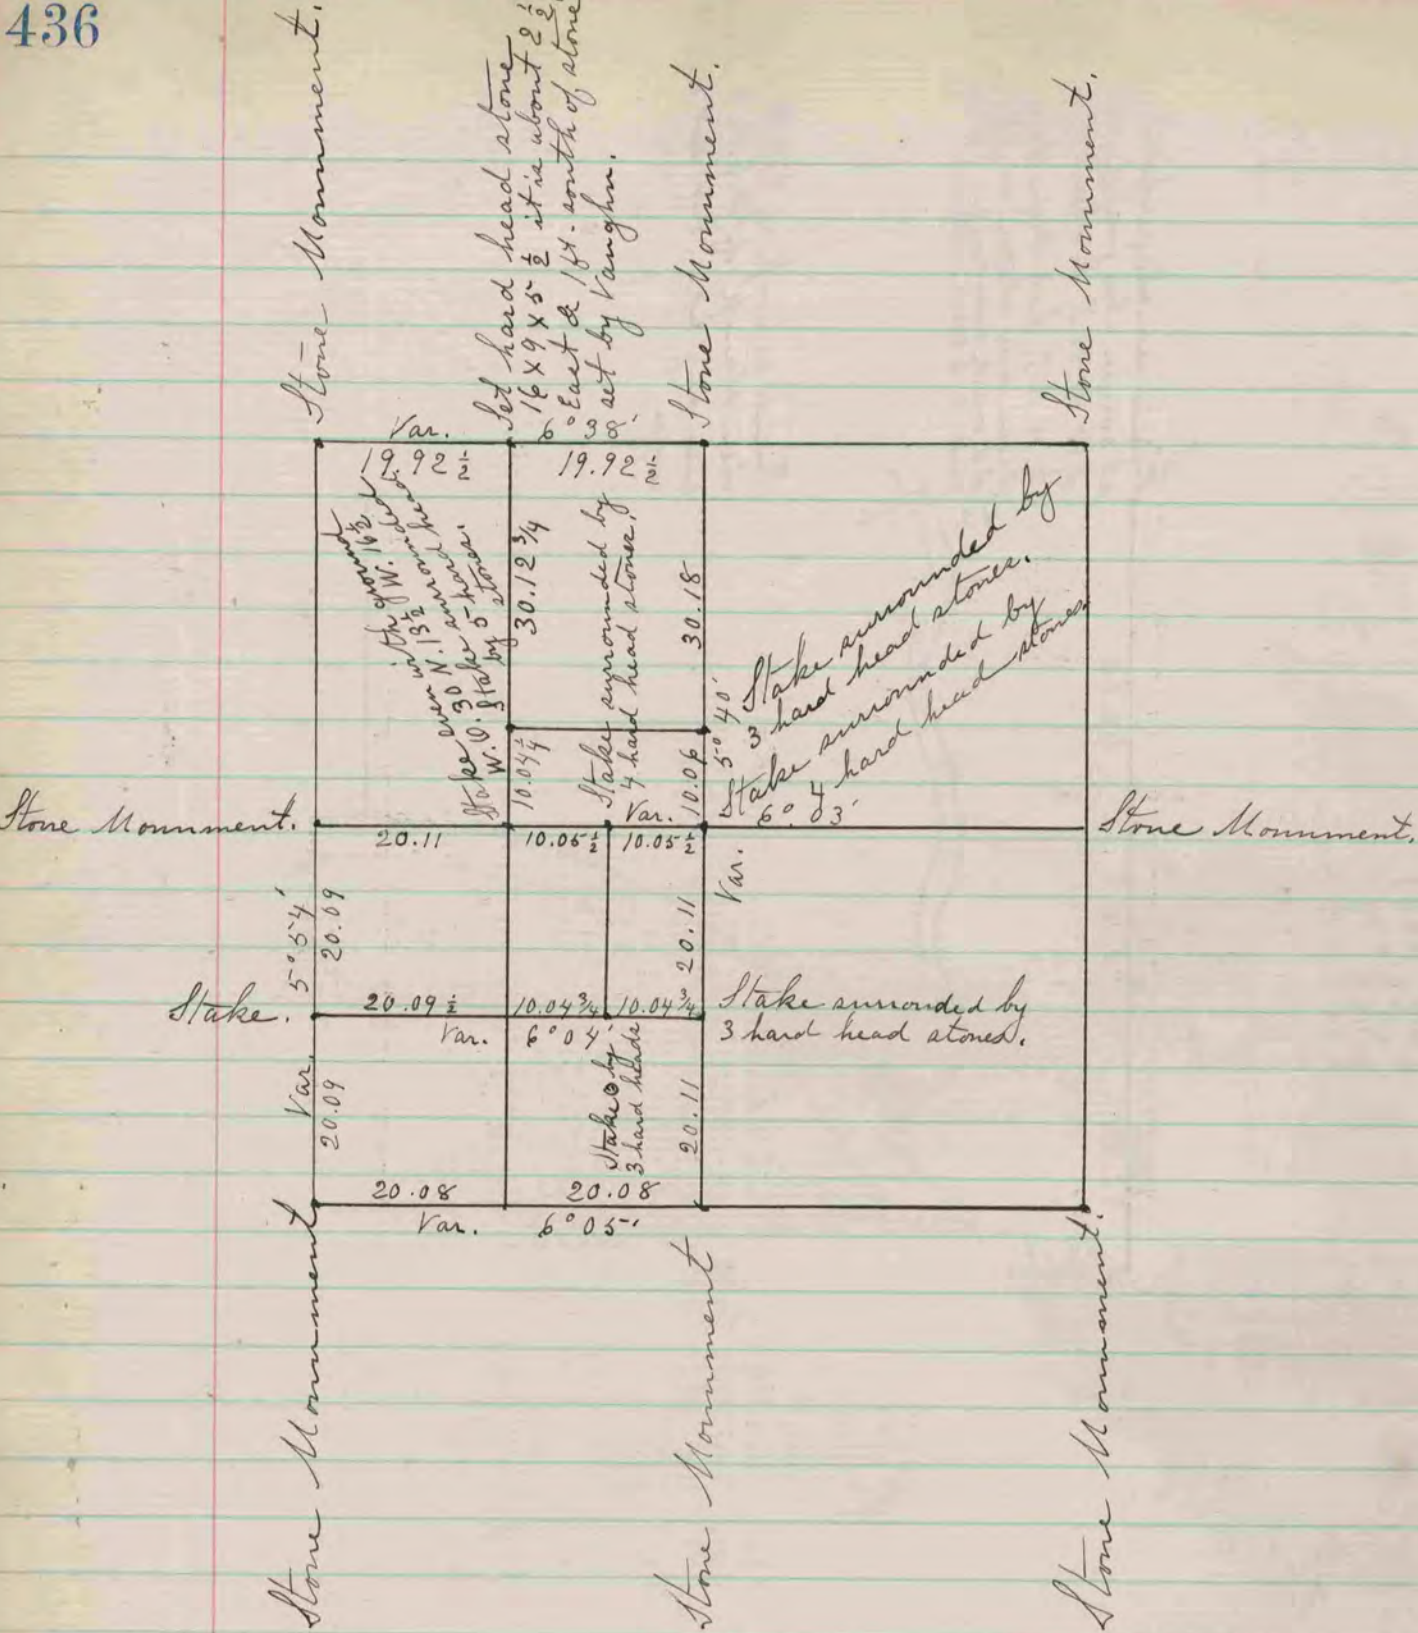 436
Stone Monument.
Set hard head stone
16 x 9 x 5 ½ it is about 2 ½
East & 1 ft. south of stone
set by Vaughn.
Stone Monument.
Stone Monument.
Var. 6° 38'
19.92 ½
19.92 ½
Stake even with the ground
W. O. 30 N. 13 ½ W. 16 ½
Stake surrounded
by 5 hard head
stones.
30.12 ¾
Stake surrounded by
4 hard head stones.
30.18
Stake surrounded by
3 hard head stones.
Stake surrounded by
4 hard head stones
10.04 ¼
10.06
5° 40'
Var.
Var. 6° 03'
Stone Monument.
20.11
10.05 ½
10.05 ½
Stone Monument.
Var. 5° 54'
20.09
20.11
Stake.
20.09 ½
10.04 ¾
10.04 ¾
Stake surrouded by
3 hard head stones.
Var. 6° 04'
20.09
Stake by
3 hard heads
20.11
20.08
20.08
Var. 6° 05'
Stone Monument
Stone Monument
Stone Monument.